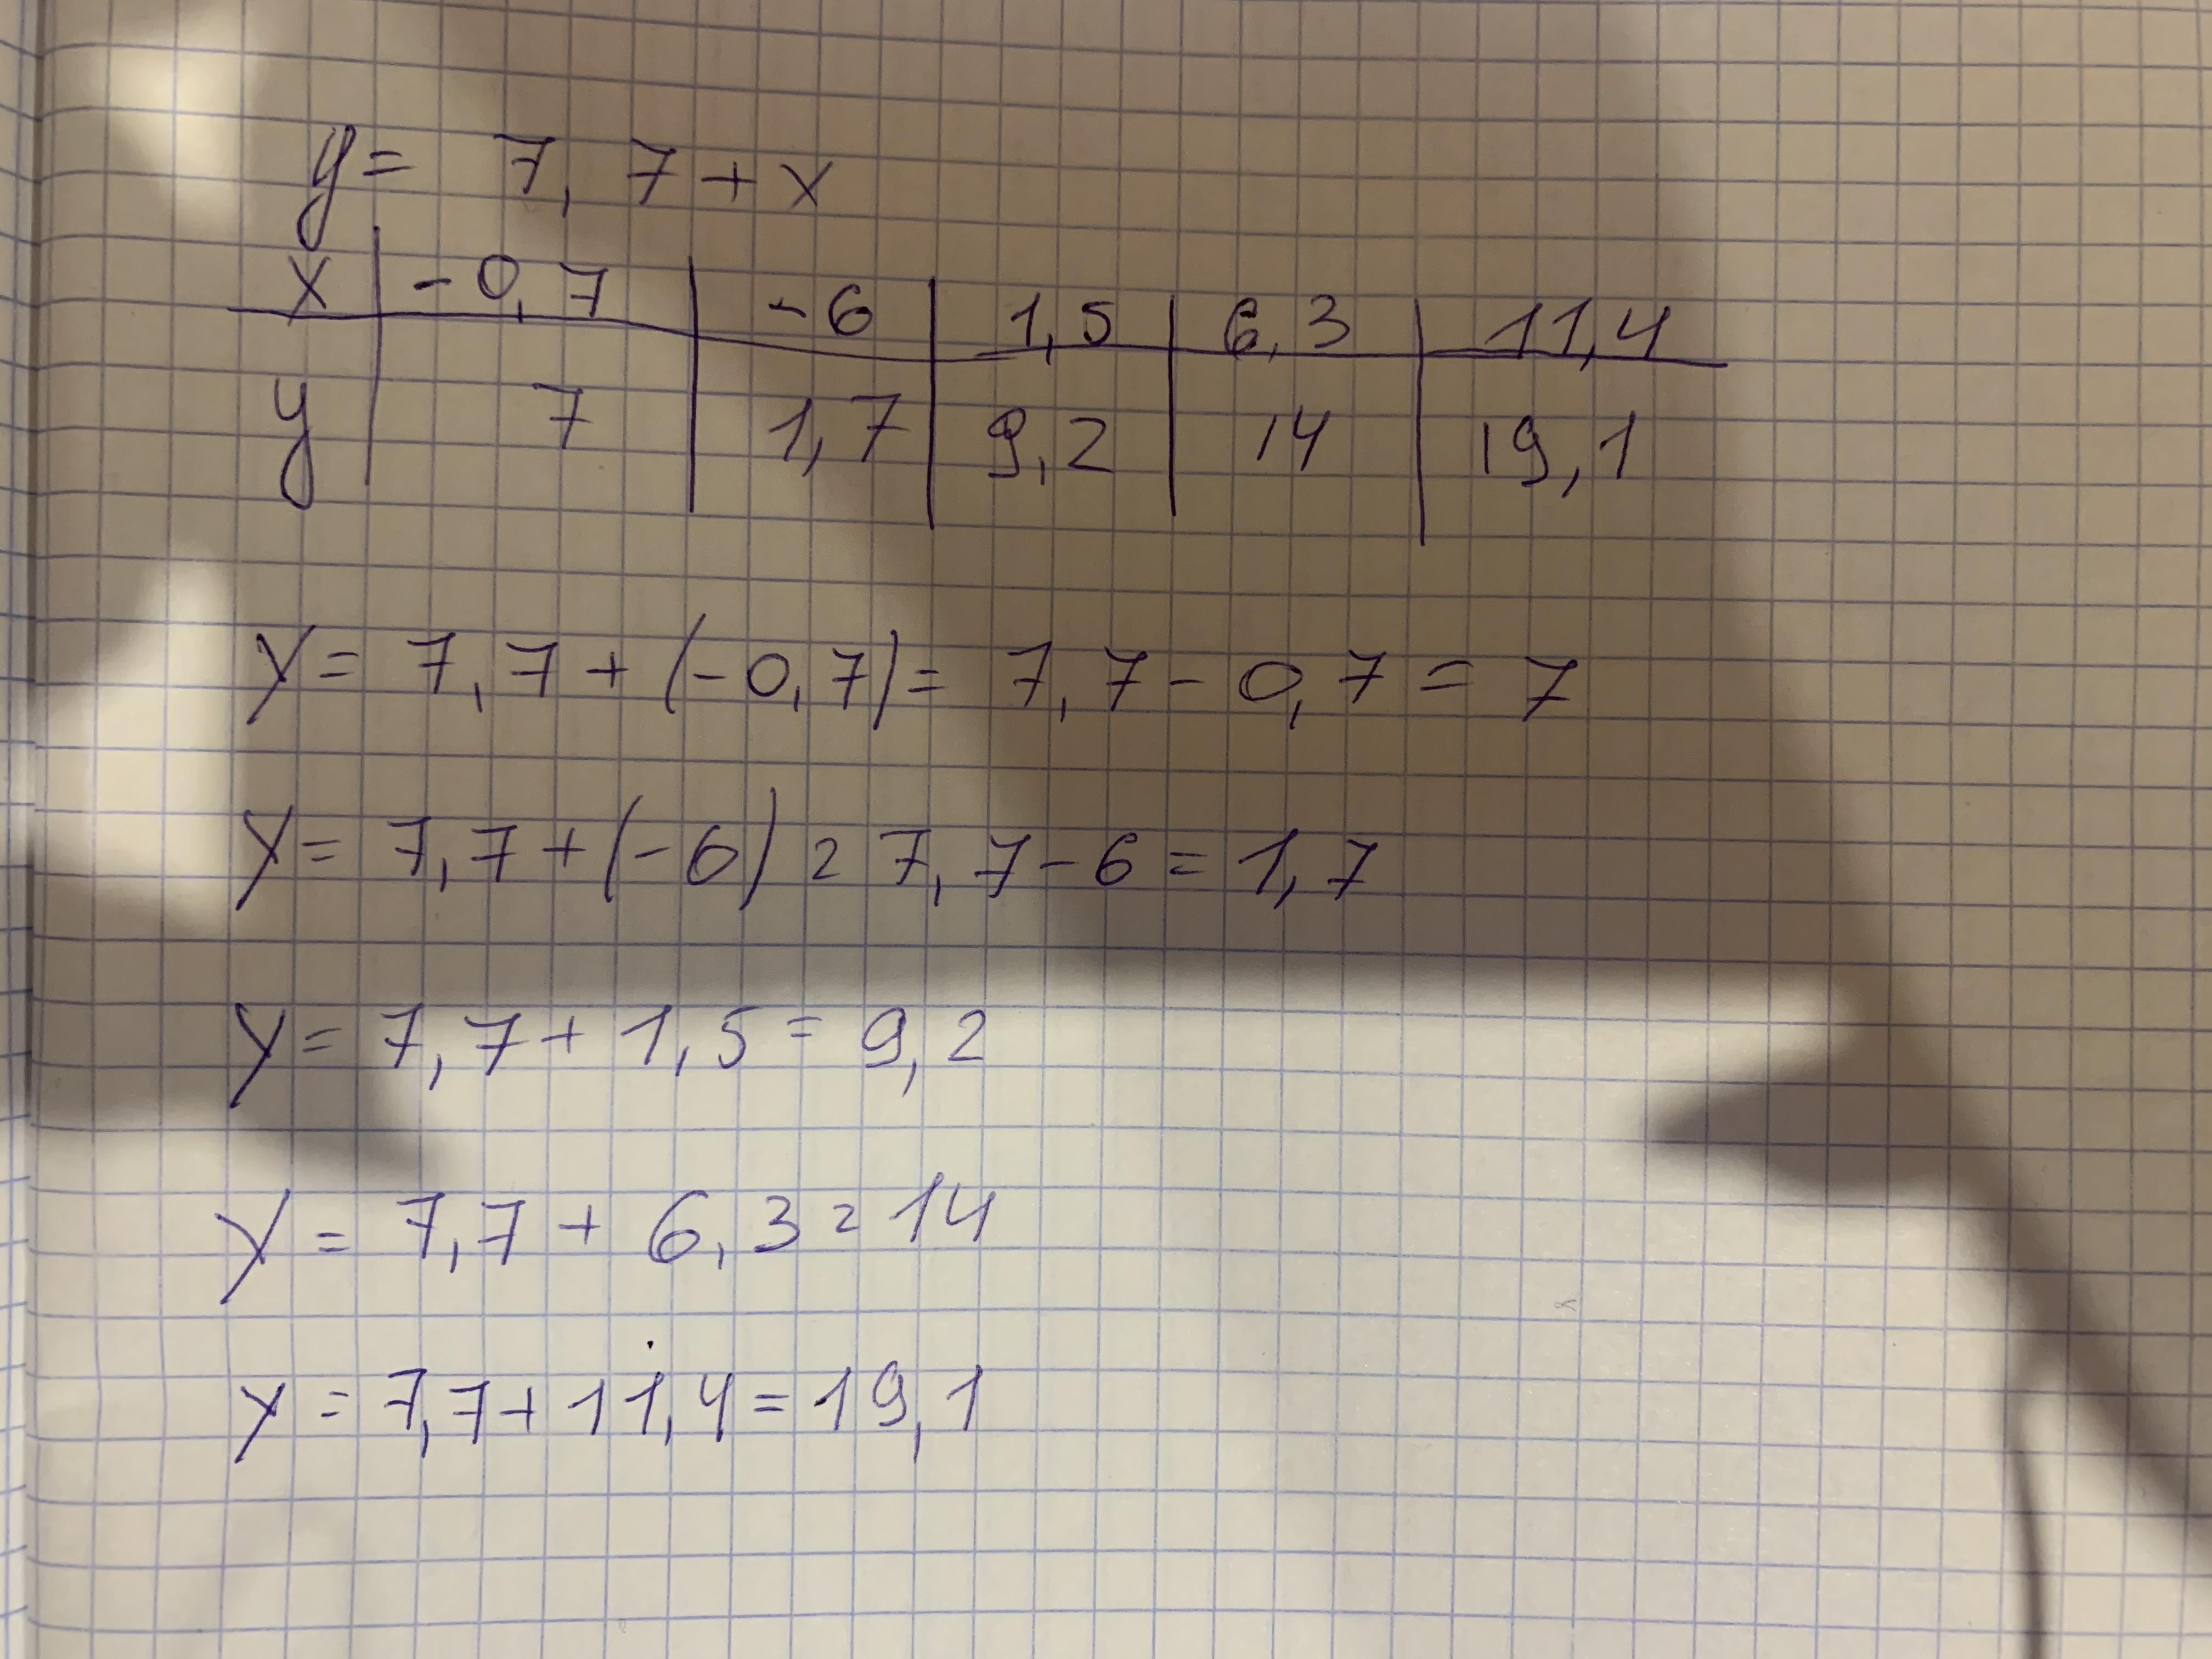 y = 7,7 + x
x | -0,7 | -6 | 1,5 | 6,3 | 11,4
y | 7 | 1,7 | 9,2 | 14 | 19,1
y = 7,7 + (-0,7) = 7,7 - 0,7 = 7
y = 7,7 + (-6) = 7,7 - 6 = 1,7
y = 7,7 + 1,5 = 9,2
y = 7,7 + 6,3 = 14
y = 7,7 + 11,4 = 19,1